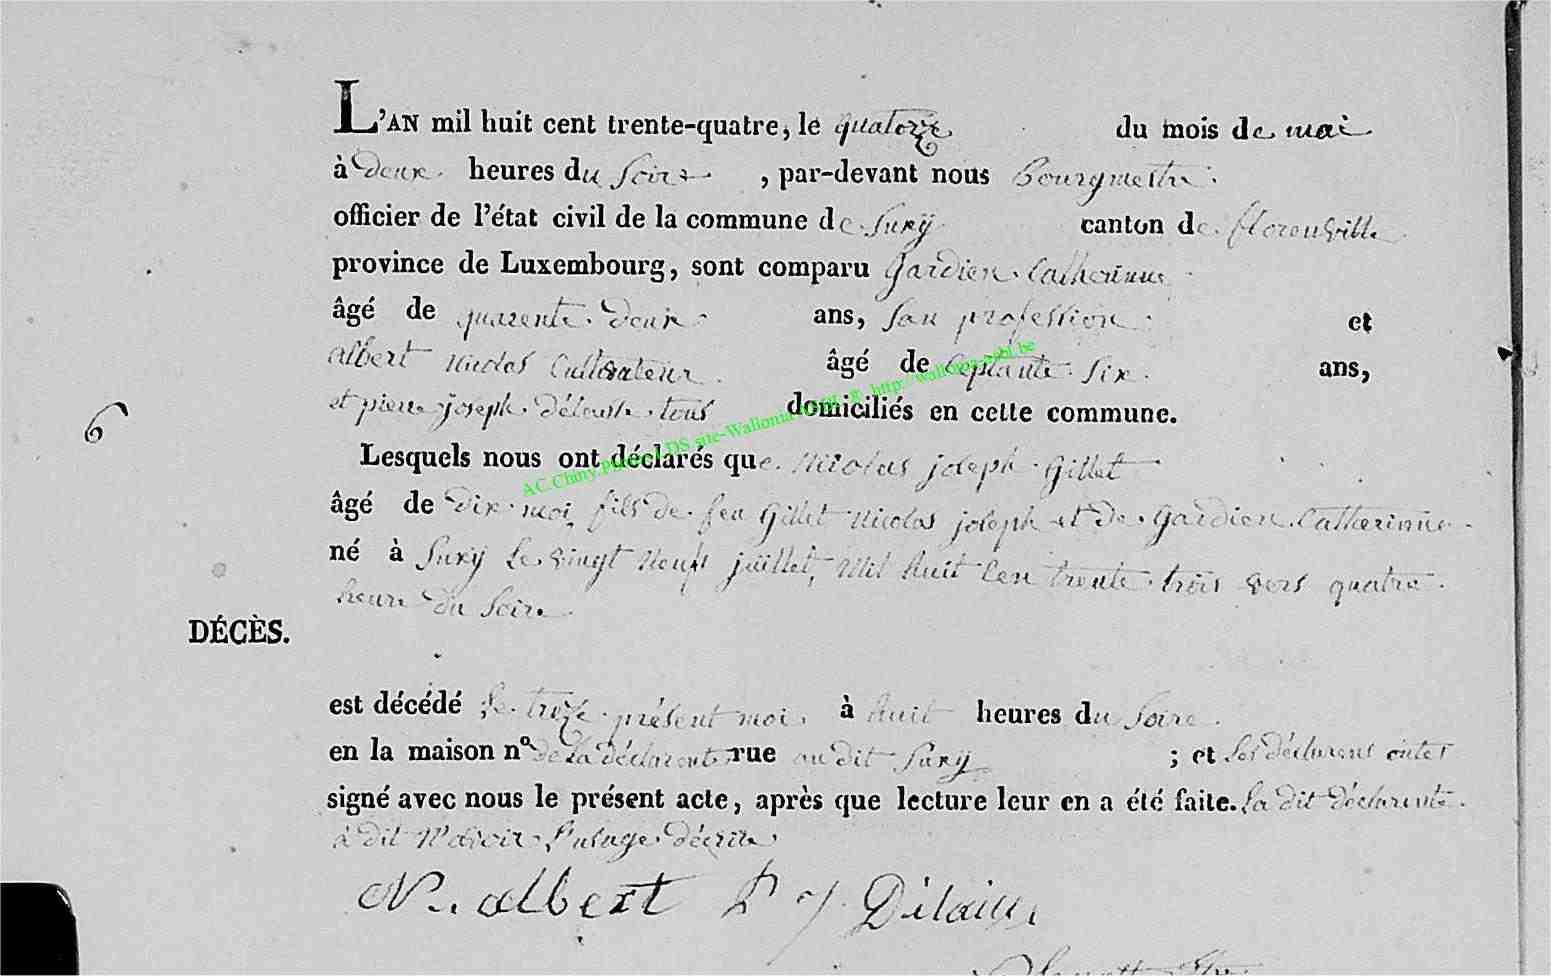 L'AN mil huit cent trente-quatre, le quatorze du mois de mai
à deux heures du soire, par-devant nous Bourgmestre
officier de l'état civil de la commune de Suxÿ canton de florenville
province de Luxembourg, sont comparu Gardien Catherinne
âgé de quarente deux ans, san profession et
albert Nicolas Cultivateur âgé de septante six ans,
et pierre joseph tous domiciliés en cette commune.
6
Lesquels nous ont déclarés que Nicolas joseph Gillet
âgé de dix moi fils de feu Gillet Nicolas joseph et de Gardien Catherinne
né à Suxÿ le vingt neuf juillet, mil huit cen trente trois vers quatre
heure du soire
DÉCÈS.
est décédé le treize présent moi à huit heures du soire
en la maison nº de la déclarente rue au dit Suxÿ ; et les déclarens ontes
signé avec nous le présent acte, après que lecture leur en a été faite. la dit déclarente
à dit n'avoir l'usage décrire
N. albert P J
AC.Chiny. site-Wallonia ® http://wallonia-asbl.be